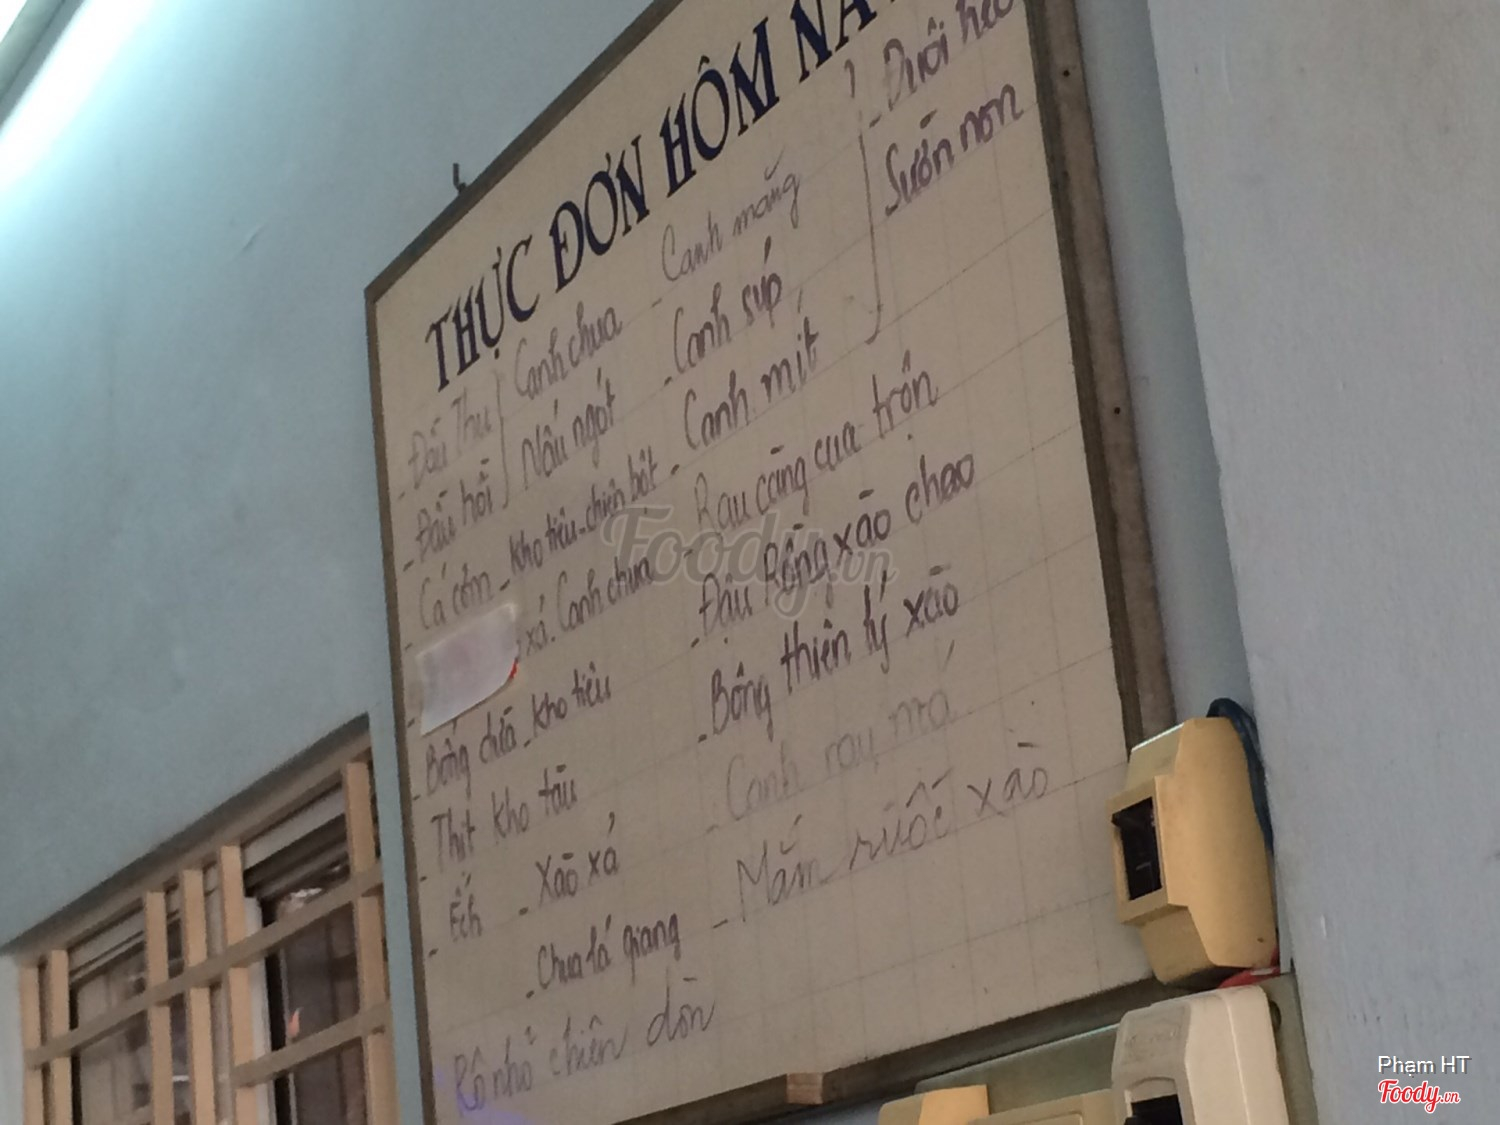 THỰC ĐƠN HÔM NA
- Đầu Thu
- Đầu hồi
Canh chua
Nấu ngót
- Cá cơm - Kho tiêu - chiên bột
xả. Canh chua
- Bống dừa - Kho tiêu
- Thịt kho tàu
- Ếch - Xào xả
- Chua lá giang
Rô nhỏ chiên dòn
- Canh măng
- Canh súp
- Canh mít
- Rau càng cua trộn
- Đậu Rồng xào chao
- Bông thiên lý xào
- Canh rau má
- Mắm ruốc xào
- Đuôi heo
Sườn non
Foody.vn
Phạm HT
Foody.vn